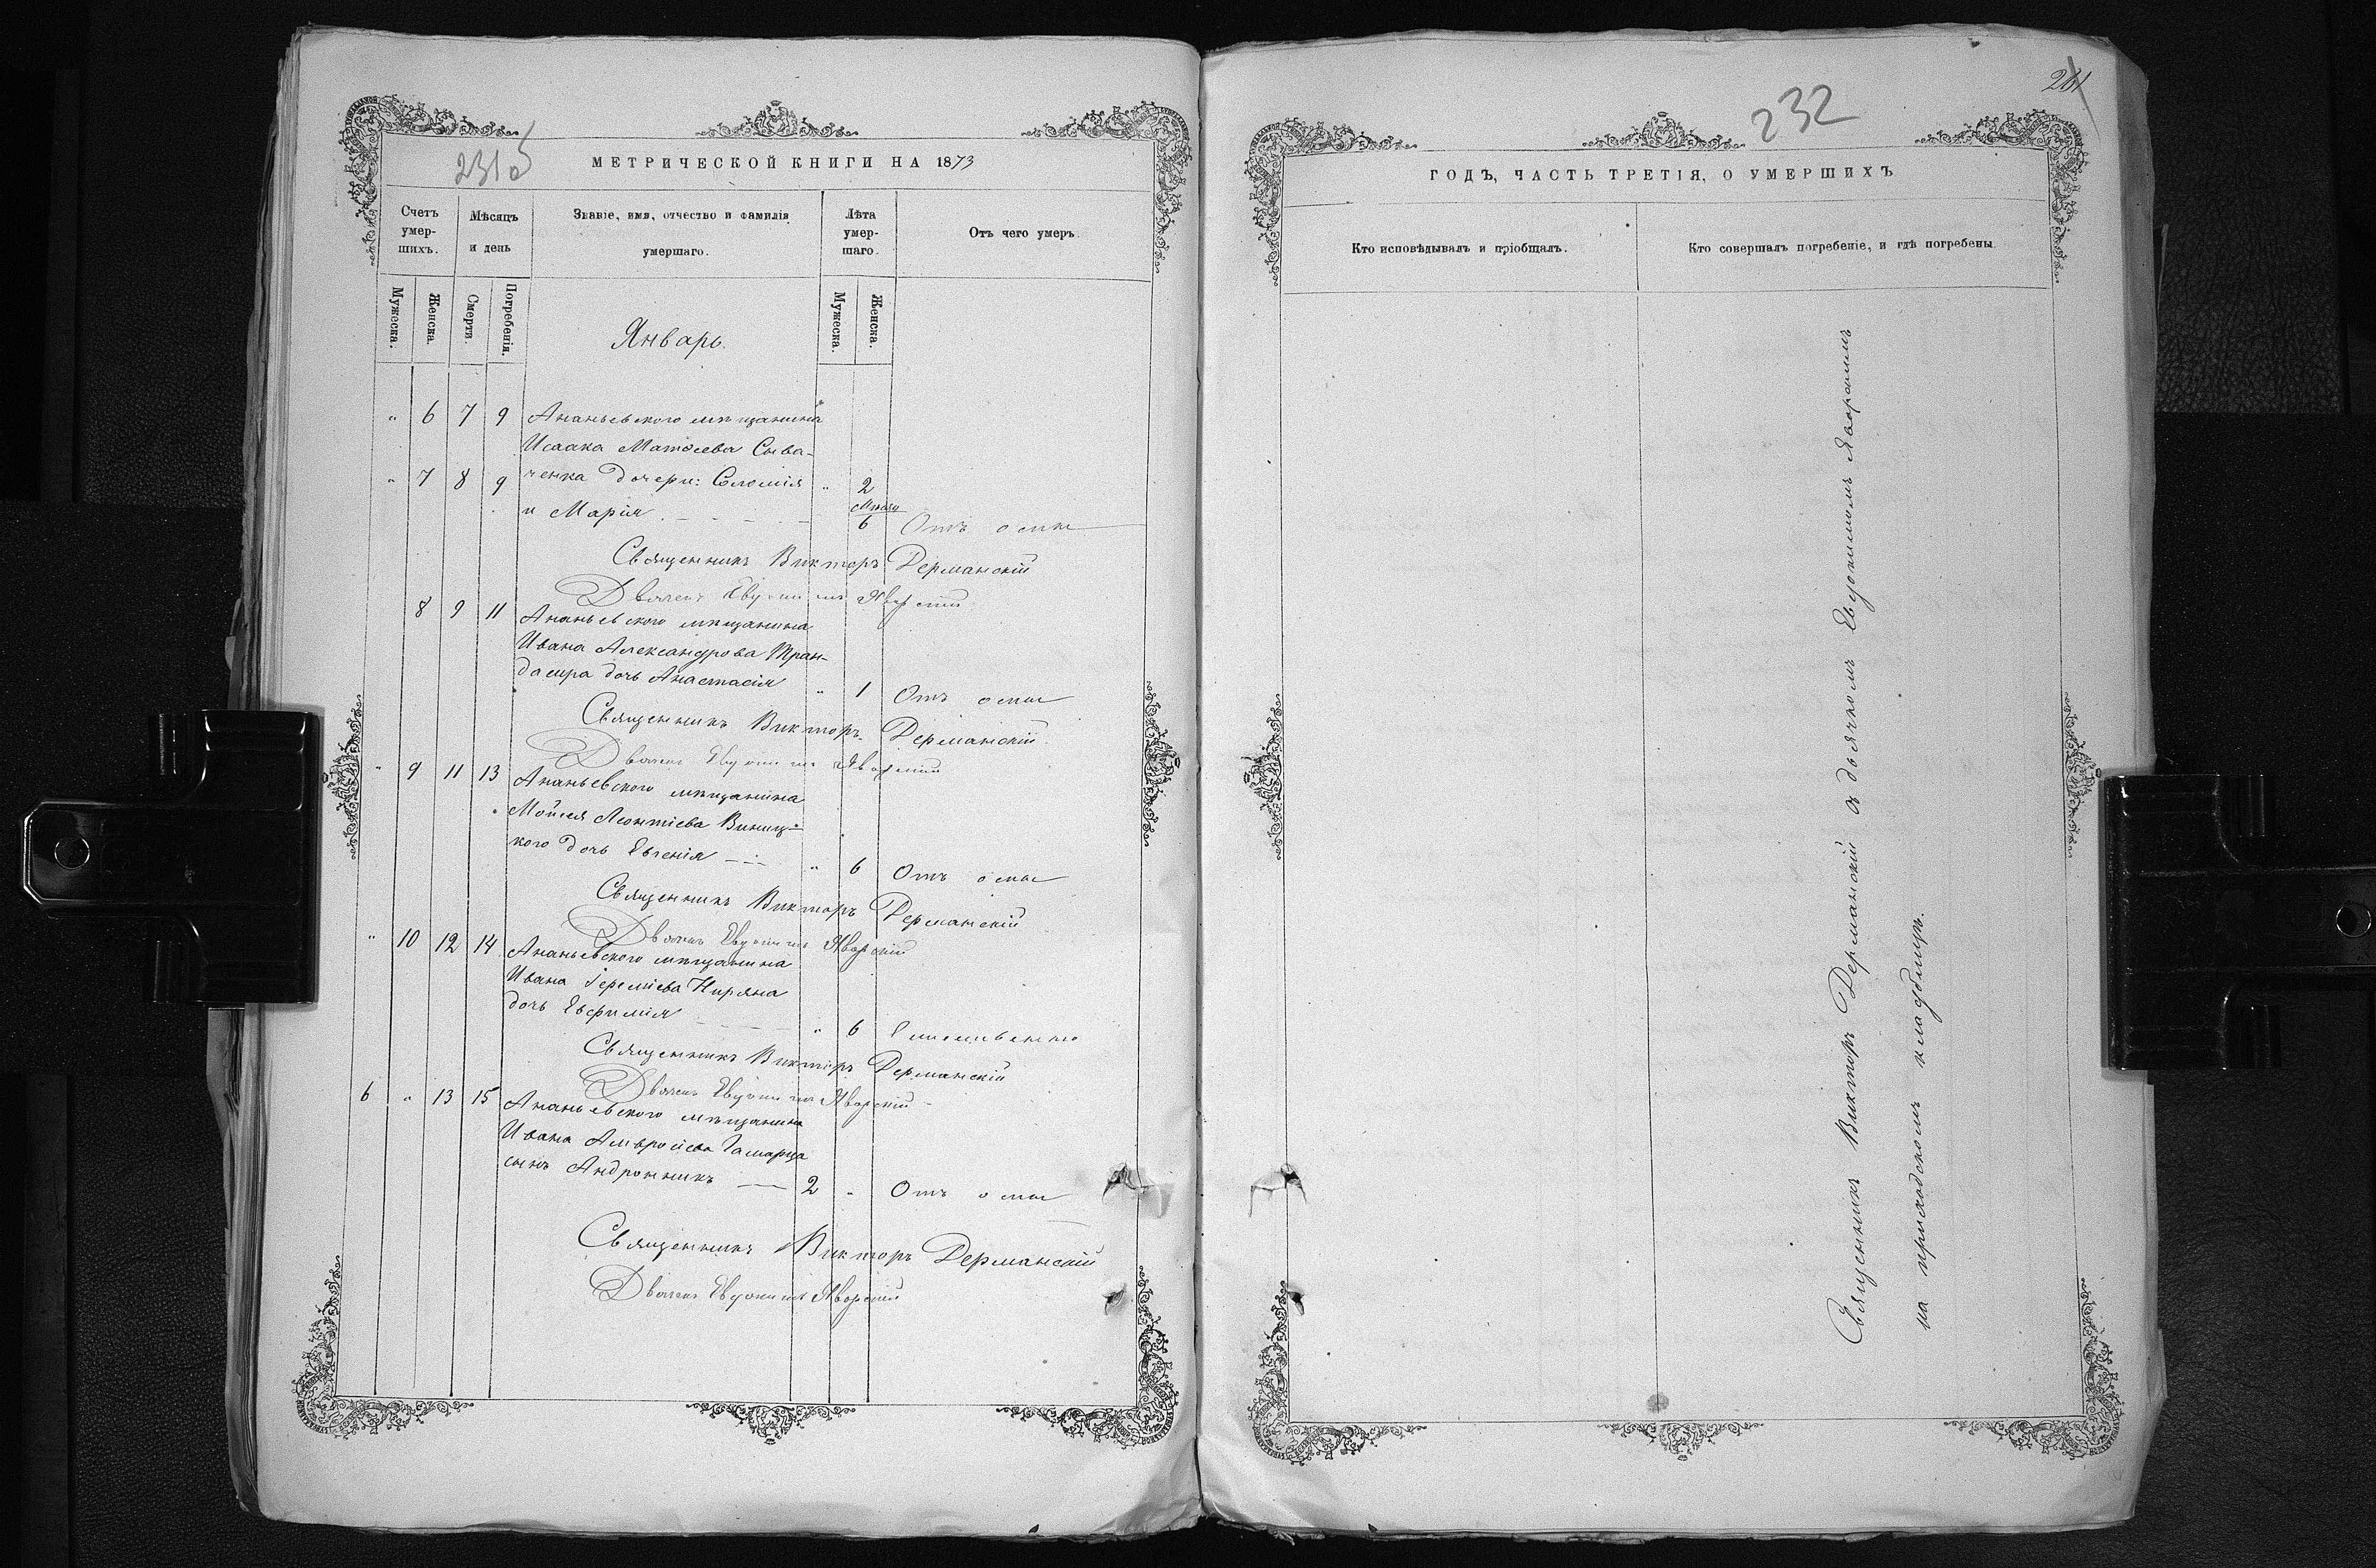 231об
МЕТРИЧЕСКОЙ КНИГИ НА 1873
Счетъ умер-шихъ.
Мѣсяцъ и день
Званіе, имя, отчество и фамилія умершаго.
Лѣта умер-шаго.
Отъ чего умеръ.
Мужеска.
Женска.
Смерти.
Погребенія.
Мужеска.
Женска.
Январь.
" 6 7 9 Ананьевского мѣщанина
Исаака Матѳеева Сыва-
" 7 8 9 ченка дочери: Соломія " 2
и Марія 6 Отъ оспы
Священникъ Викторъ Дерманскій
Дьячекъ Евдокимъ Яворскій
8 9 11 Ананьевского мѣщанина
Ивана Александрова Тран-
дасира дочь Анастасія " 1 Отъ оспы
Священникъ Викторъ Дерманскій
Дьячекъ Евдокимъ Яворскій
" 9 11 13 Ананьевского мѣщанина
Мойсея Леонтіева Виниц-
кого дочь Евгенія " 6 Отъ оспы
Священникъ Викторъ Дерманскій
Дьячекъ Евдокимъ Яворскій
" 10 12 14 Ананьевского мѣщанина
Ивана Іереміева Киряна
дочь Евфимія " 6
Священникъ Викторъ Дерманскій
Дьячекъ Евдокимъ Яворскій
6 " 13 15 Ананьевского мѣщанина
Ивана Амвросіева
сынъ Андроникъ 2 " Отъ оспы
Священникъ Викторъ Дерманскій
Дьячекъ Евдокимъ Яворскій
261
232
ГОДЪ, ЧАСТЬ ТРЕТІЯ, О УМЕРШИХЪ
Кто исповѣдывалъ и пріобщалъ.
Кто совершалъ погребеніе, и гдѣ погребены.
Священникъ Викторъ Дерманскій съ дьячкомъ Евдокимомъ Яворскимъ
на приходскомъ кладбищѣ.